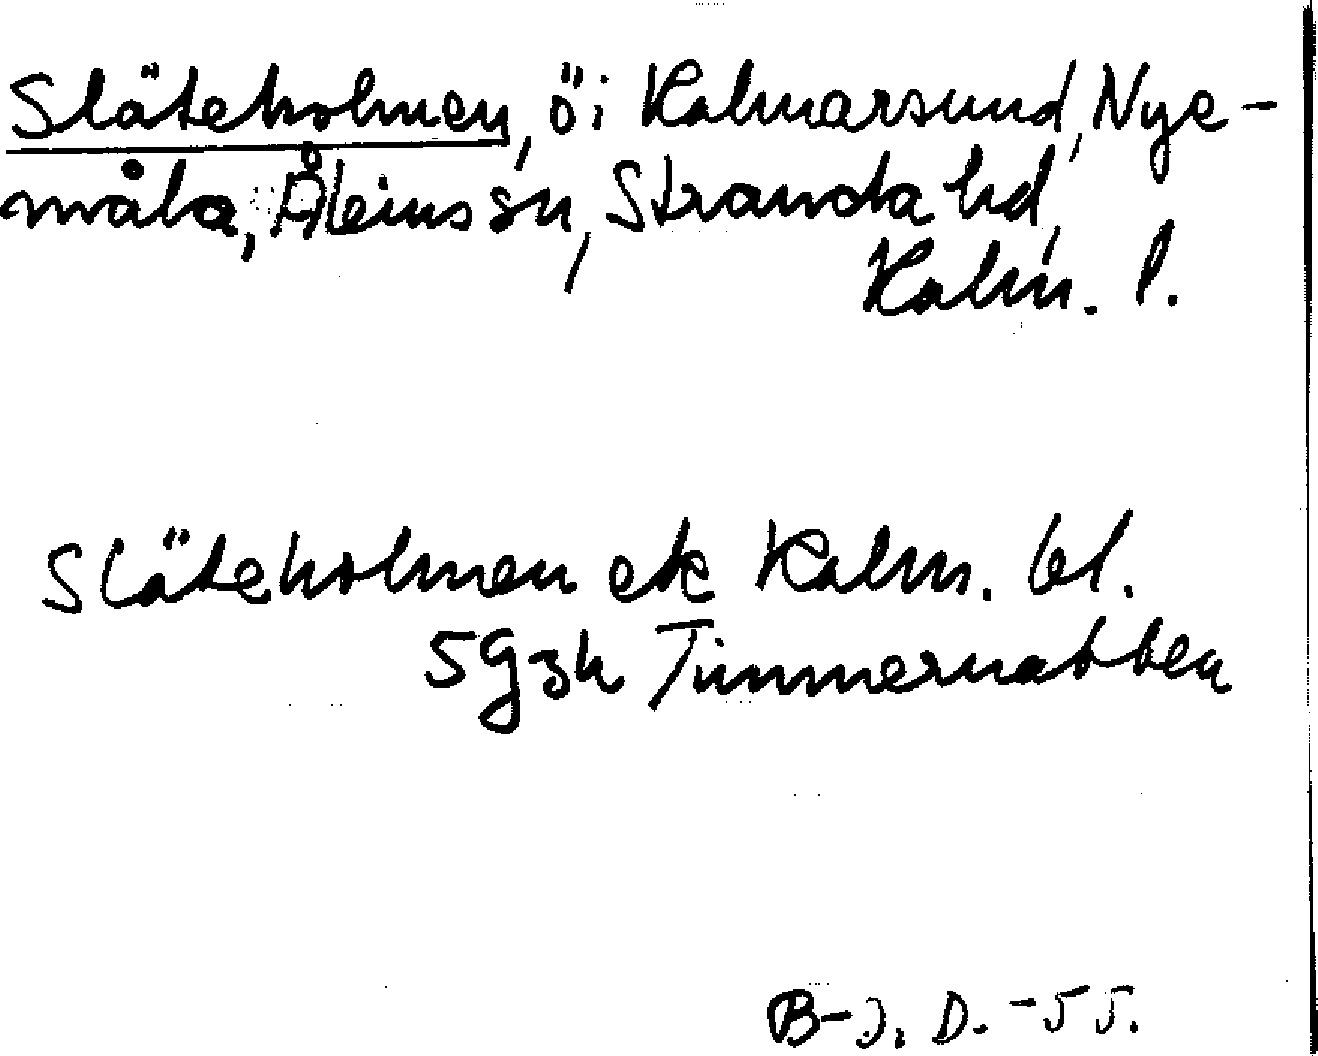 Släteholmen, ö i Kalmarsund, Nye-
måla, Ålems sn, Stranda hd,
Kalm. l.
Släteholmen ek Kalm. bl.
5g3h Timmernabben
B-J. D. -55.